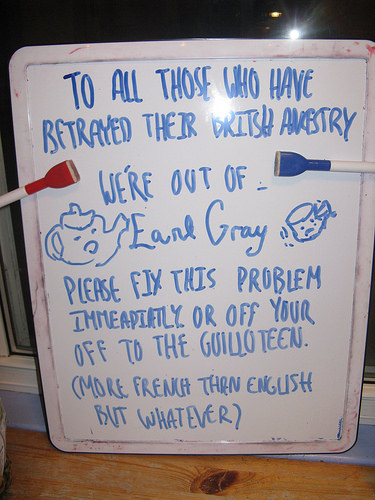 TO ALL THOSE WHO HAVE
BETRAYED THEIR BRITSH ANESTRY
WE'RE OUT OF -
Earl Gray
PLEASE FIX THIS PROBLEM
IMMEADIATLY OR OFF YOUR
OFF TO THE GUILLOTEEN.
(MORE FRENCH THAN ENGLISH
BUT WHATEVER)